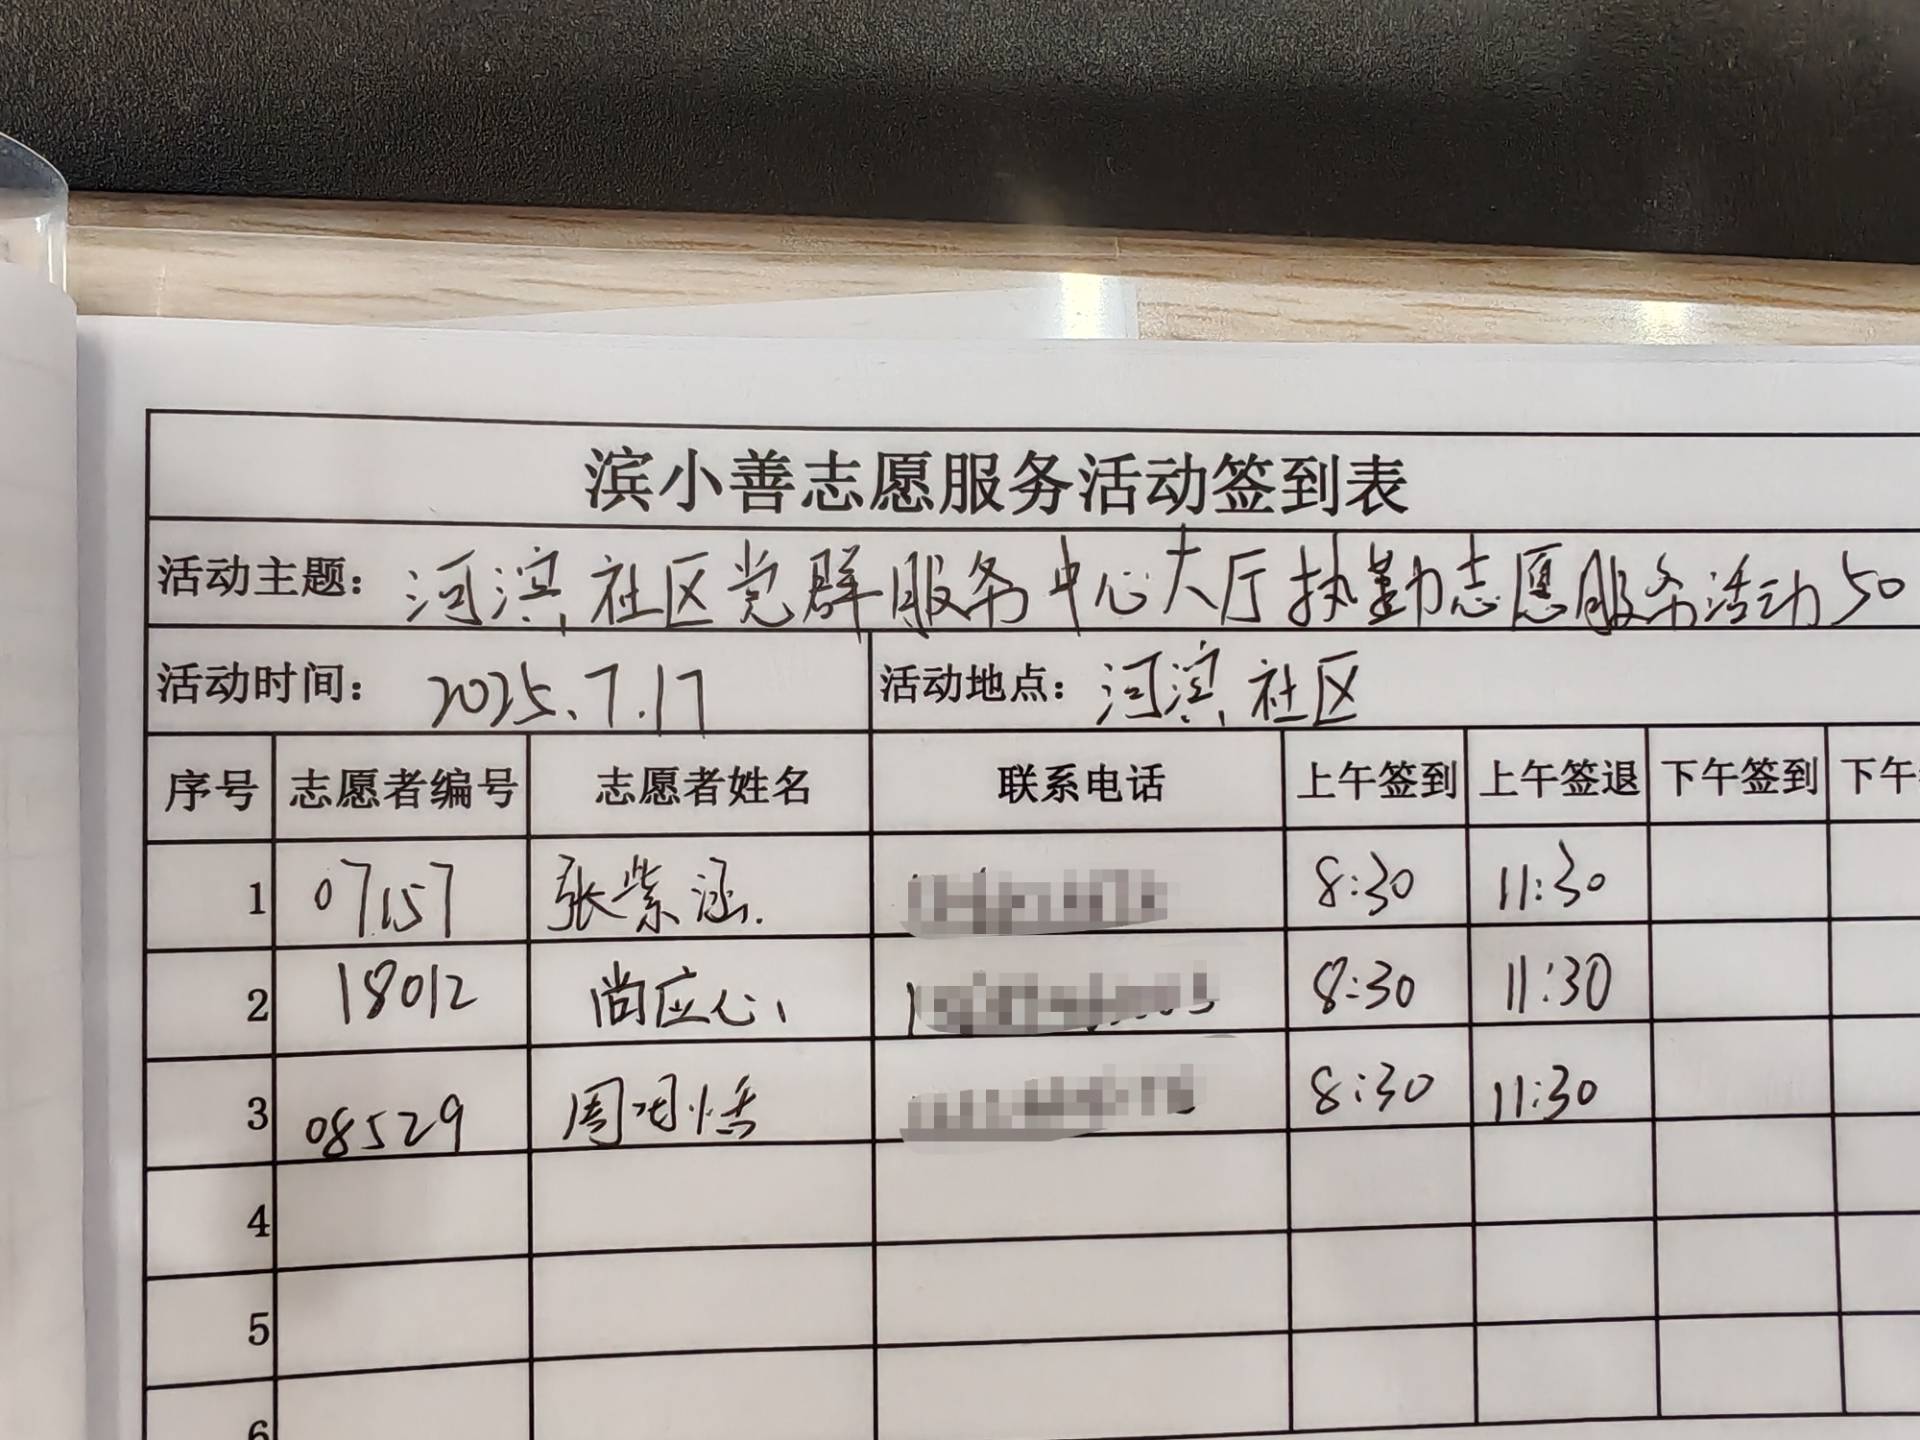 滨小善志愿服务活动签到表
活动主题：河滨社区党群服务中心大厅执勤志愿服务活动50
活动时间：2025.7.17 活动地点：河滨社区
序号 志愿者编号 志愿者姓名 联系电话 上午签到 上午签退 下午签到 下午
1 07157 张紫涵 8:30 11:30
2 18012 尚应心 8:30 11:30
3 08529 周 恬 8:30 11:30
4
5
6